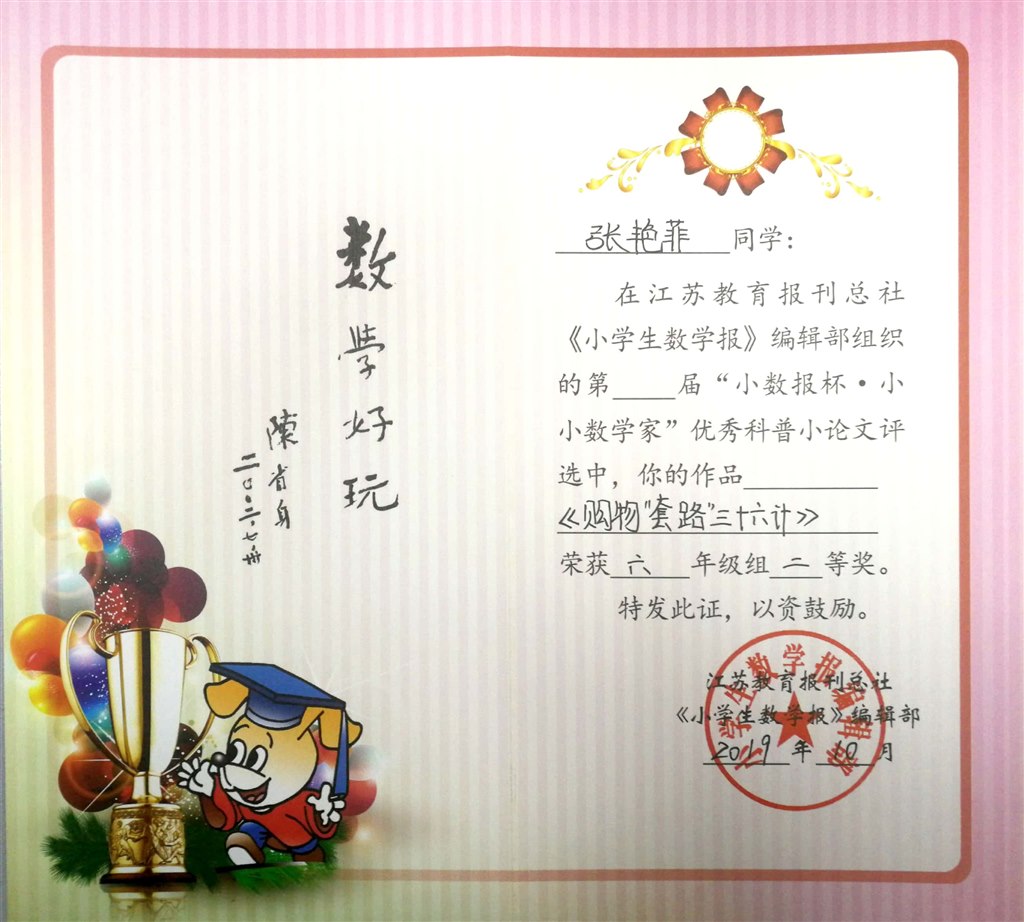 数学好玩
陳省身
二〇〇二.七.卅
张艳菲 同学：
在江苏教育报刊总社
《小学生数学报》编辑部组织
的第____届“小数报杯·小
小数学家”优秀科普小论文评
选中，你的作品
《购物“套路”三十六计》
荣获 六 年级组 二 等奖。
特发此证，以资鼓励。
江苏教育报刊总社
《小学生数学报》编辑部
2019 年 10 月
小学生数学报编辑部